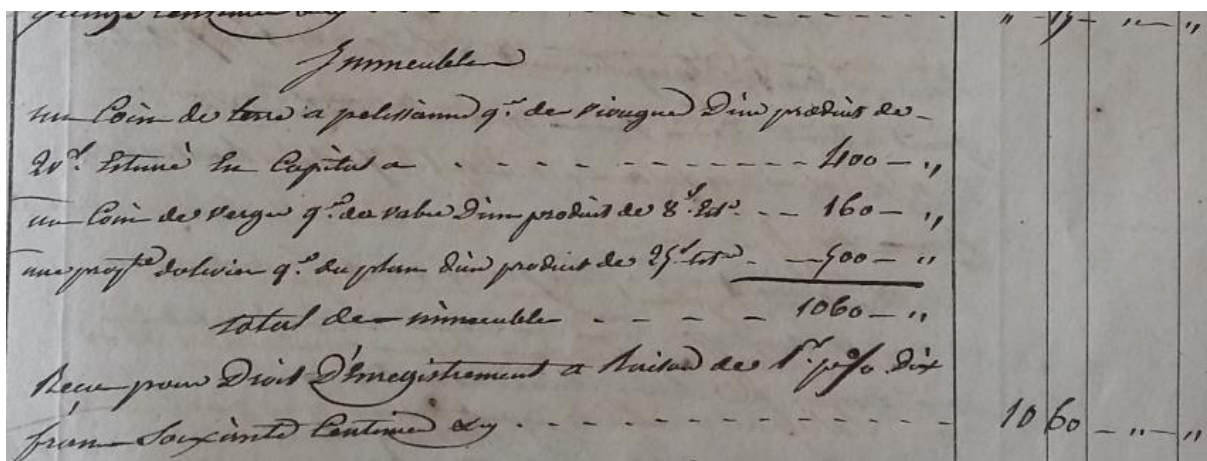 quinze centimes cy - - - " 15 - " - "
Immeubles
un Coin de terre a pelissanne q.er de vivagne D'un produit de
20f. Estimé En Capital a - - - - - - 400 - "
un Coin de verger q.er de D'un produit de 8f. Est. - - 160 - "
une prop.te dolivier q.er du plan d'un produit de 25f. est. - - 500 - "
total des immeubles - - - - 1060 - "
Recu pour Droit D'Enregistrement a Raison de 1f. p% Dix
francs Soixante Centimes Cy - - - - - - 10 60 - " - "